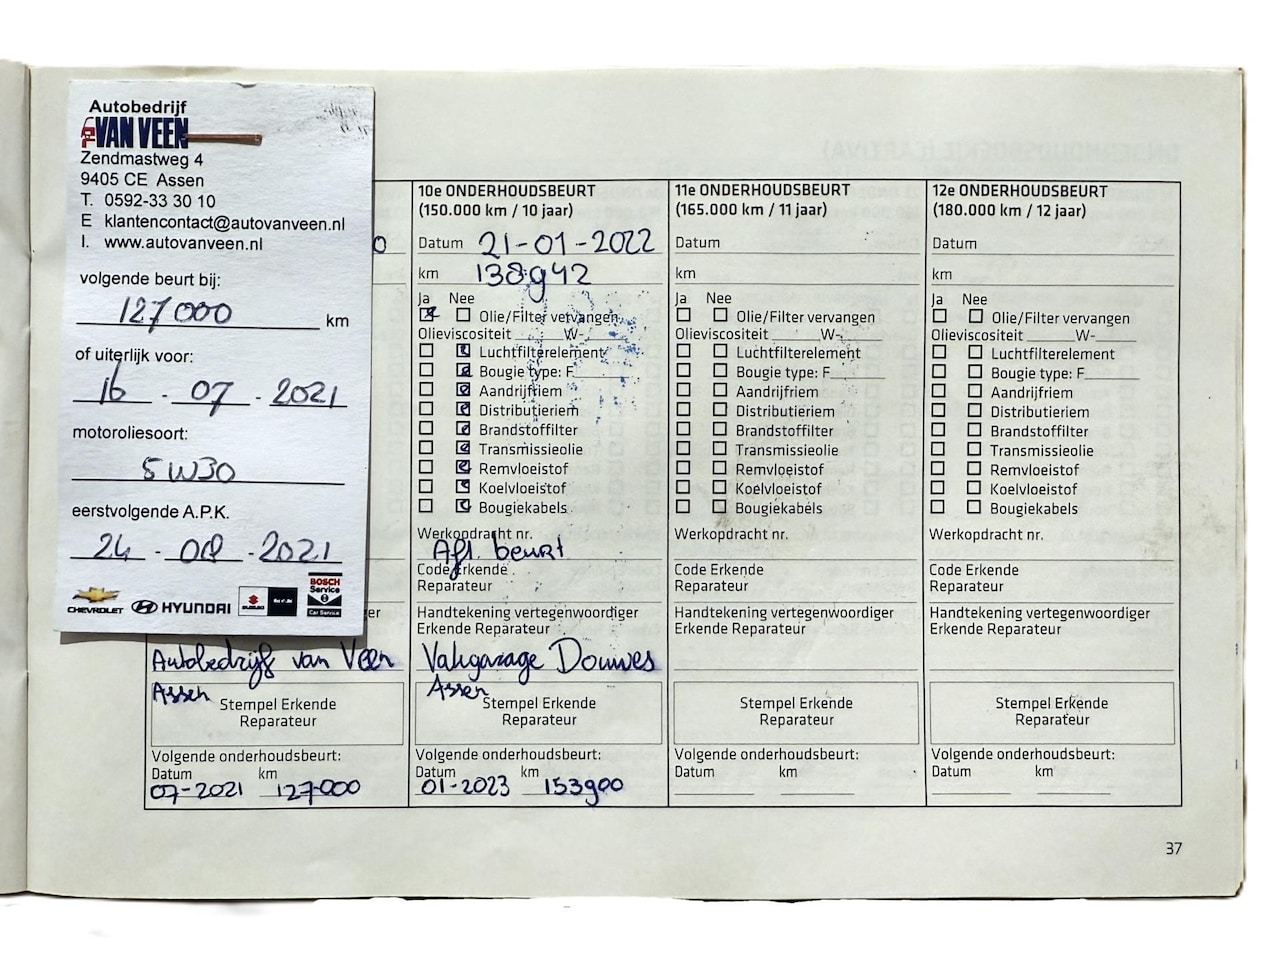 Autobedrijf
VAN VEEN
Zendmastweg 4
9405 CE Assen
T. 0592-33 30 10
E klantencontact@autovanveen.nl
I. www.autovanveen.nl
volgende beurt bij:
127000 km
of uiterlijk voor:
16 - 07 - 2021
motoroliesoort:
5W30
eerstvolgende A.P.K.
24 - 08 - 2021
CHEVROLET HYUNDAI SUZUKI
BOSCH
Service
Car Service
Autobedrijf van Veen
Assen
Stempel Erkende
Reparateur
Volgende onderhoudsbeurt:
Datum km
07-2021 127000
10e ONDERHOUDSBEURT
(150.000 km / 10 jaar)
Datum 21-01-2022
km 138942
Ja Nee
Olie/Filter vervangen
Olieviscositeit ______W-_____
Luchtfilterelement
Bougie type: F________
Aandrijfriem
Distributieriem
Brandstoffilter
Transmissieolie
Remvloeistof
Koelvloeistof
Bougiekabels
Werkopdracht nr.
Afl. beurt
Code Erkende
Reparateur
Handtekening vertegenwoordiger
Erkende Reparateur
Vakgarage Douwes
Assen
Stempel Erkende
Reparateur
Volgende onderhoudsbeurt:
Datum km
01-2023 153900
11e ONDERHOUDSBEURT
(165.000 km / 11 jaar)
Datum
km
Ja Nee
Olie/Filter vervangen
Olieviscositeit ______W-_____
Luchtfilterelement
Bougie type: F________
Aandrijfriem
Distributieriem
Brandstoffilter
Transmissieolie
Remvloeistof
Koelvloeistof
Bougiekabels
Werkopdracht nr.
Code Erkende
Reparateur
Handtekening vertegenwoordiger
Erkende Reparateur
Stempel Erkende
Reparateur
Volgende onderhoudsbeurt:
Datum km
12e ONDERHOUDSBEURT
(180.000 km / 12 jaar)
Datum
km
Ja Nee
Olie/Filter vervangen
Olieviscositeit ______W-_____
Luchtfilterelement
Bougie type: F________
Aandrijfriem
Distributieriem
Brandstoffilter
Transmissieolie
Remvloeistof
Koelvloeistof
Bougiekabels
Werkopdracht nr.
Code Erkende
Reparateur
Handtekening vertegenwoordiger
Erkende Reparateur
Stempel Erkende
Reparateur
Volgende onderhoudsbeurt:
Datum km
37